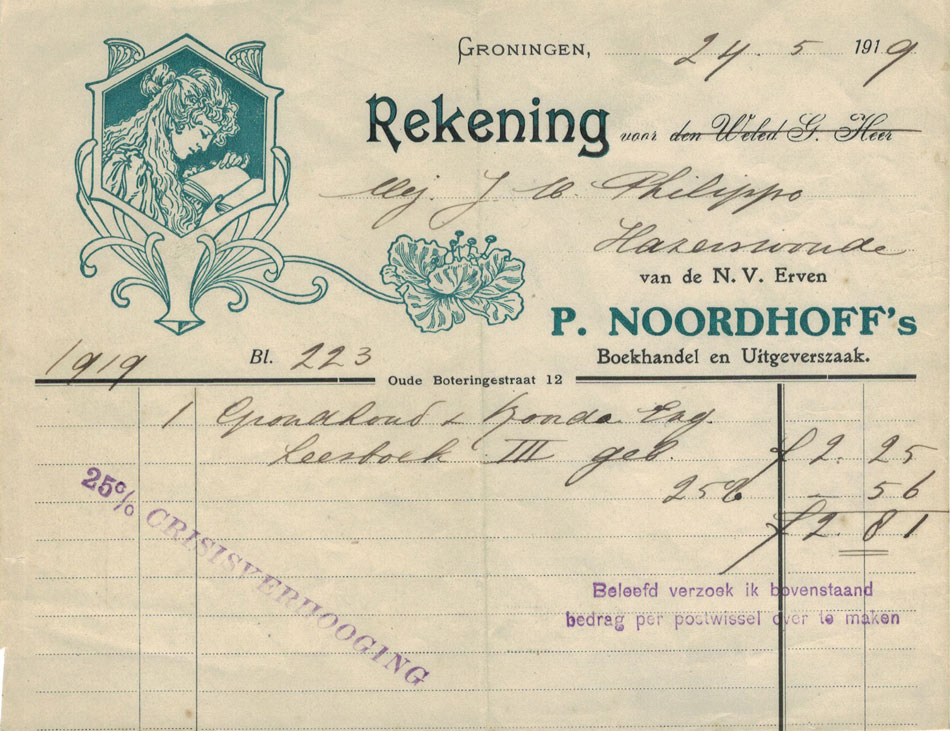 GRONINGEN, 24 5 1919
Rekening voor den Weled. G. Heer
Mej. J M. Philippo
Hazerswoude
van de N. V. Erven
P. NOORDHOFF's
Boekhandel en Uitgeverszaak.
1919 Bl. 223
Oude Boteringestraat 12
1 Grondhoud & Roorda Eng.
Leesboek III geb. f 2. 25
25% _ 56
f 2. 81
25% CRISISVERHOOGING
Beleefd verzoek ik bovenstaand
bedrag per postwissel over te maken